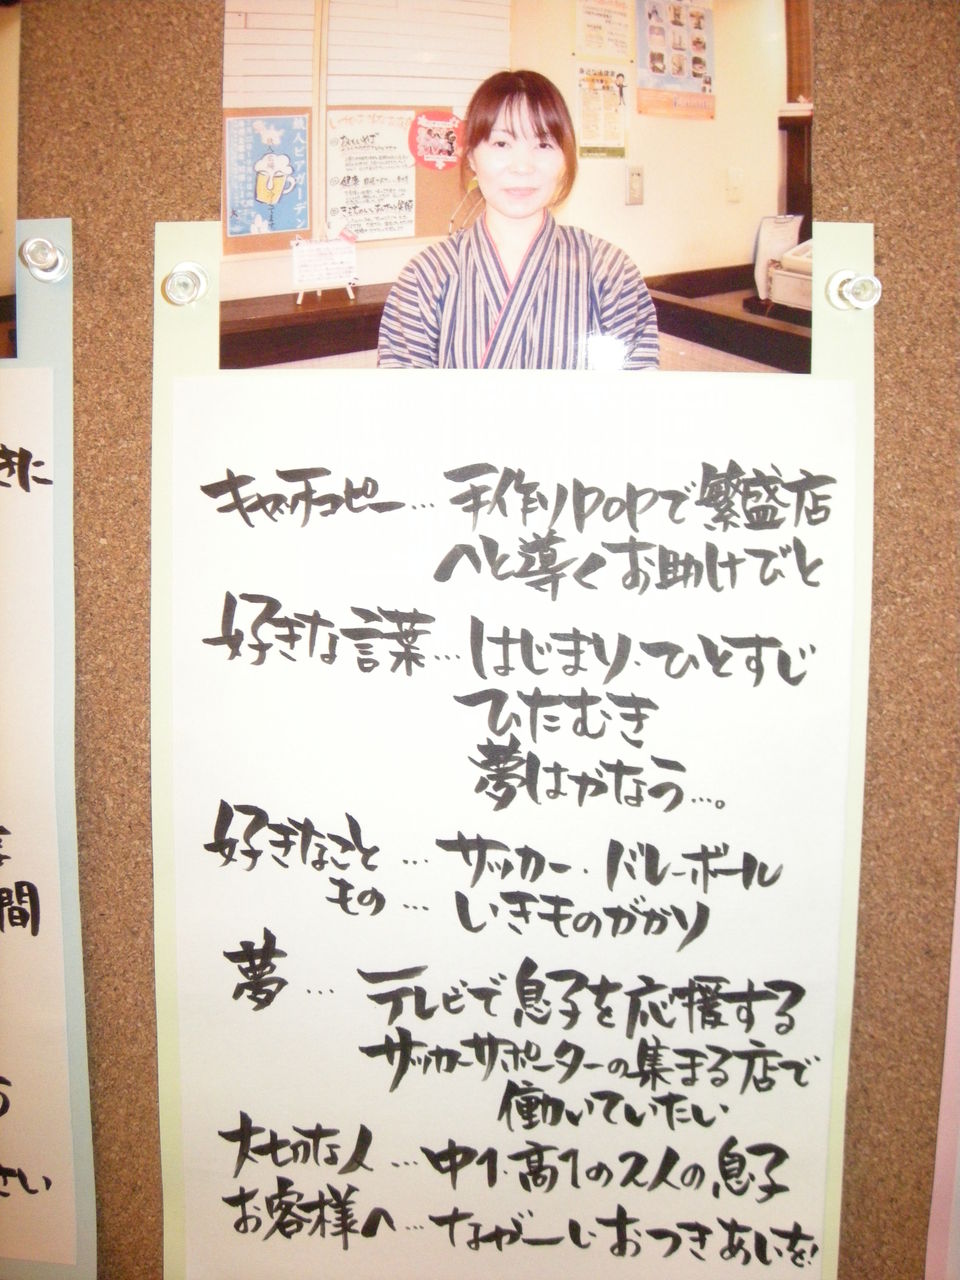 職人ビアガーデン
キャッチコピー…手作りPOPで繁盛店
へと導くお助けびと
好きな言葉…はじまり・ひとすじ
ひたむき
夢はかなう…。
好きなこと…サッカー・バレーボール
もの…いきものがかり
夢…テレビで息子を応援する
サッカーサポーターの集まる店で
働いていたい
大切な人…中1・高1の2人の息子
お客様へ…ながーいおつきあいを!
きに
間
う
さい